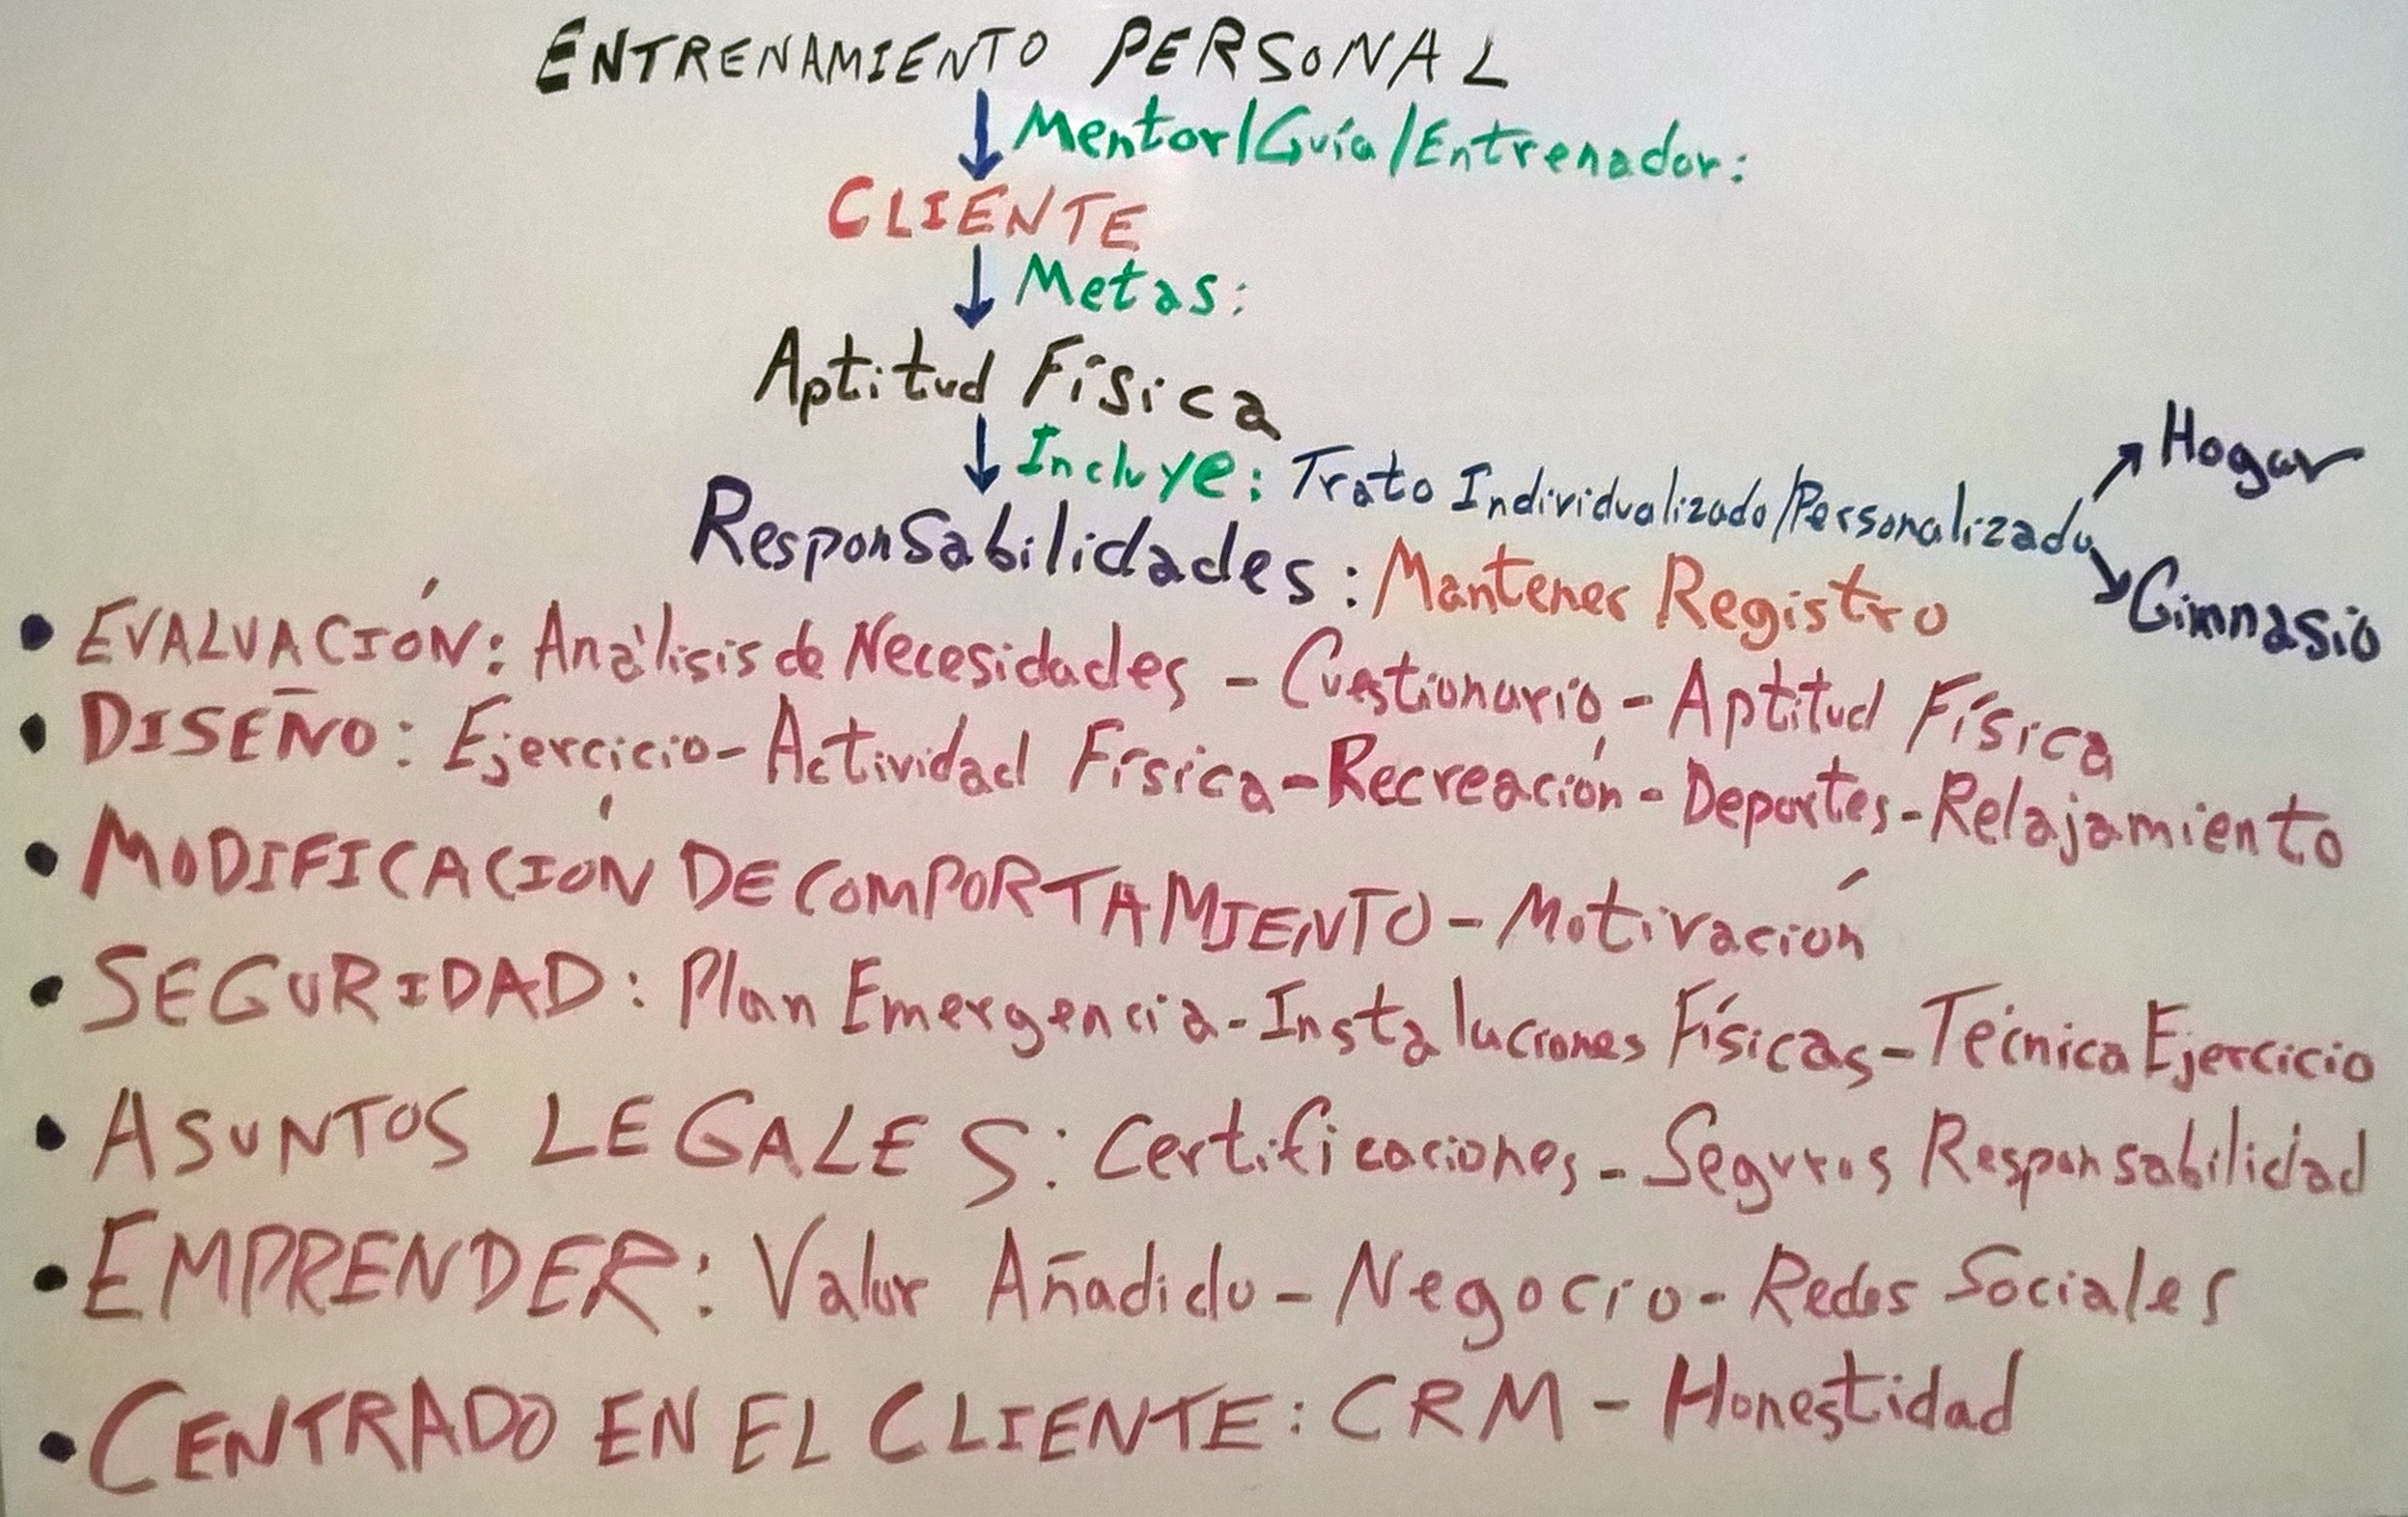 ENTRENAMIENTO PERSONAL
Mentor/Guía/Entrenador:
CLIENTE
Metas:
Aptitud Física
Incluye: Trato Individualizado/Personalizado
Hogar
Gimnasio
Responsabilidades: Mantener Registro
• EVALUACIÓN: Análisis de Necesidades - Cuestionario - Aptitud Física
• DISEÑO: Ejercicio - Actividad Física - Recreación - Deportes - Relajamiento
• MODIFICACIÓN DE COMPORTAMIENTO - Motivación
• SEGURIDAD: Plan Emergencia - Instalaciones Físicas - Técnica Ejercicio
• ASUNTOS LEGALES: Certificaciones - Seguros Responsabilidad
• EMPRENDER: Valor Añadido - Negocio - Redes Sociales
• CENTRADO EN EL CLIENTE: CRM - Honestidad